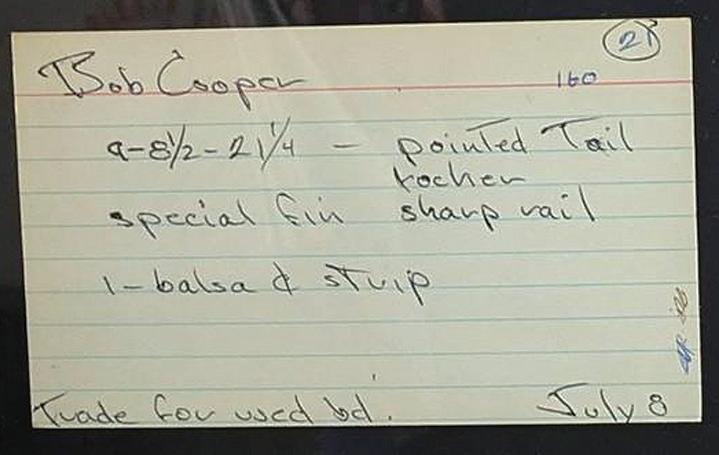 21
Bob Cooper 160
9-8 1/2 - 21 1/4 - pointed Tail
rocker
special fin sharp rail
1 - balsa & strip
Trade for used bd. July 8